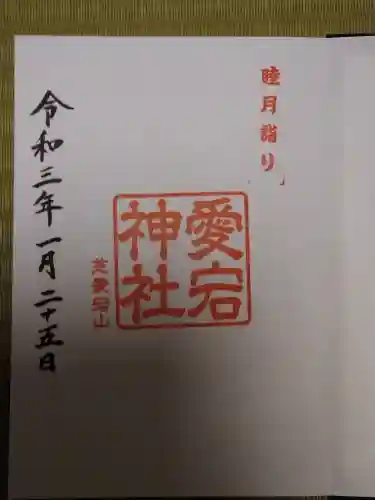 睦月詣り
愛宕
神社
芝愛宕山
令和三年一月二十五日